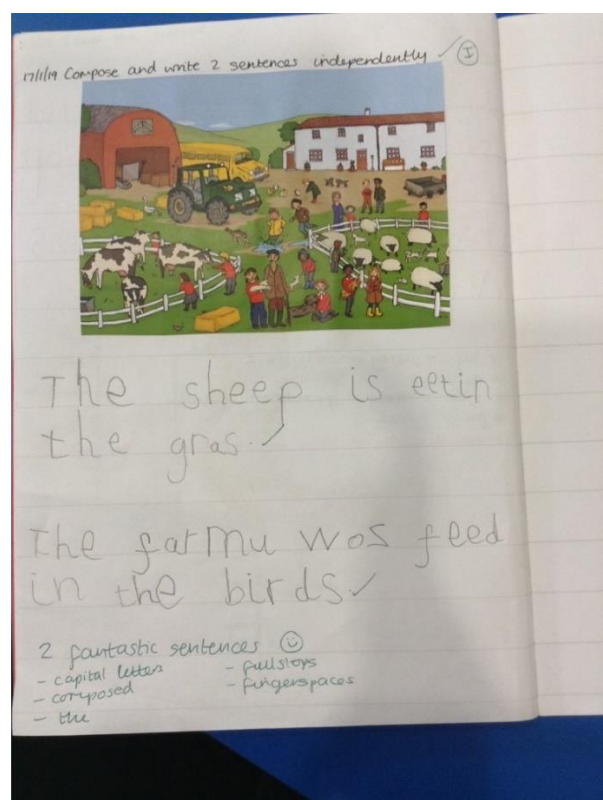 17/1/19 Compose and write 2 sentences independently ✓ I
The sheep is eetin
the gras. ✓
The farmu wos feed
in the birds. ✓
2 fantastic sentences ☺
- capital letters
- composed
- the
- fullstops
- fingerspaces